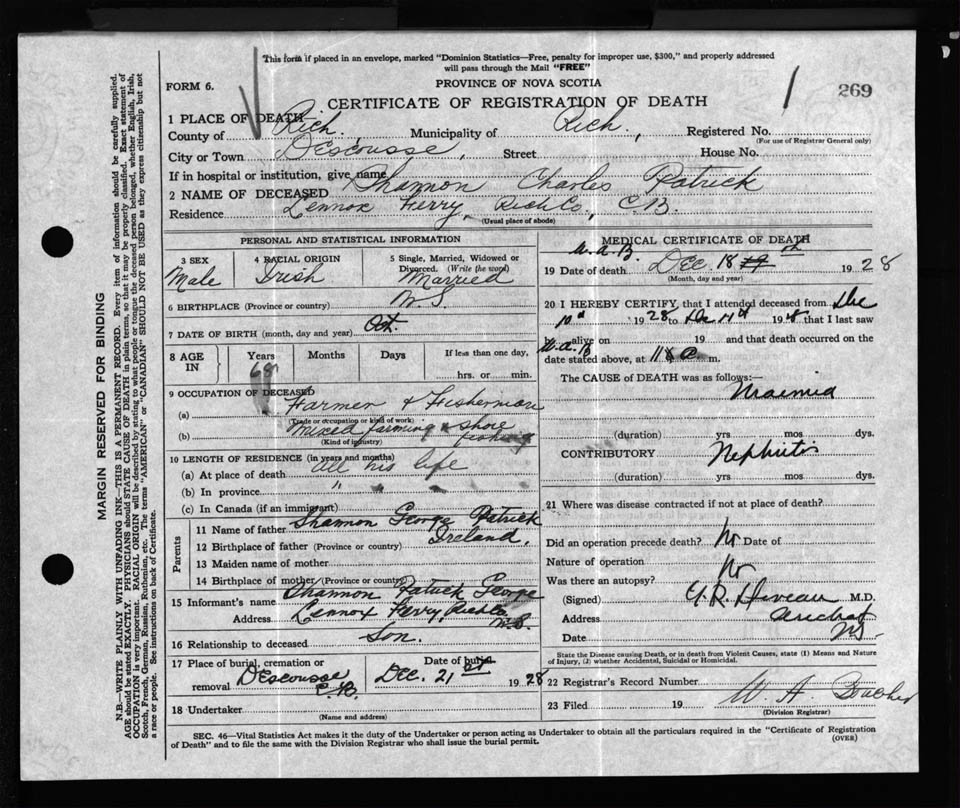 This form if placed in an envelope, marked "Dominion Statistics—Free, penalty for improper use, $300," and properly addressed
will pass through the Mail "FREE"
FORM 6.
PROVINCE OF NOVA SCOTIA
269
CERTIFICATE OF REGISTRATION OF DEATH
1 PLACE OF DEATH
County of Rich. , Municipality of Rich. , Registered No.
(For use of Registrar General only)
City or Town Descousse , Street House No.
If in hospital or institution, give name
2 NAME OF DECEASED Shannon Charles Patrick
Residence Lennox Ferry, Rich Co., C.B.
(Usual place of abode)
PERSONAL AND STATISTICAL INFORMATION
3 SEX Male
4 RACIAL ORIGIN Irish
5 Single, Married, Widowed or Divorced. (Write the word) Married
6 BIRTHPLACE (Province or country) N.S.
7 DATE OF BIRTH (month, day and year) Oct.
8 AGE IN Years Months Days If less than one day,
hrs. or min.
9 OCCUPATION OF DECEASED
(a) Farmer & Fisherman
(Trade or occupation or kind of work)
(b) Mixed farming & shore fishing
(Kind of industry)
10 LENGTH OF RESIDENCE (in years and months)
(a) At place of death all his life
(b) In province " " "
(c) In Canada (if an immigrant)
Parents
11 Name of father Shannon George Patrick
12 Birthplace of father (Province or country) Ireland.
13 Maiden name of mother
14 Birthplace of mother (Province or country)
15 Informant's name Shannon Patrick George
Address Lennox Ferry, Rich Co. N.S.
16 Relationship to deceased Son.
17 Place of burial, cremation or removal Descousse C.B.
Date of burial Dec. 21st 1928
18 Undertaker
(Name and address)
MEDICAL CERTIFICATE OF DEATH
W.A.B.
19 Date of death Dec. 18 th 1928
(Month, day and year)
20 I HEREBY CERTIFY, that I attended deceased from Dec
1928 to Dec 11th 1918 that I last saw
W.A.B.
alive on 19 and that death occurred on the
date stated above, at 11 a m.
The CAUSE OF DEATH was as follows:—
Uraemia
(duration) yrs mos dys.
CONTRIBUTORY Nephritis
(duration) yrs mos dys.
21 Where was disease contracted if not at place of death?
Did an operation precede death? No Date of
Nature of operation
Was there an autopsy? No
(Signed) M.D.
Address Arichat
Date NS
State the Disease causing Death, or in death from Violent Causes, state (1) Means and Nature
of Injury, (2) whether Accidental, Suicidal or Homicidal.
22 Registrar's Record Number
23 Filed 19 W. A.
(Division Registrar)
SEC. 46—Vital Statistics Act makes it the duty of the Undertaker or person acting as Undertaker to obtain all the particulars required in the "Certificate of Registration
of Death" and to file the same with the Division Registrar who shall issue the burial permit.
(OVER)
MARGIN RESERVED FOR BINDING
N.B.—WRITE PLAINLY WITH UNFADING INK—THIS IS A PERMANENT RECORD. Every item of information should be carefully supplied.
AGE should be stated EXACTLY. PHYSICIANS should STATE CAUSE OF DEATH in plain terms, so that it may be properly classified. Exact statement of
OCCUPATION is very important. RACIAL ORIGIN will be described by stating to what people or tongue the deceased person belonged, whether English, Irish,
Scotch, French, German, Russian, Ruthenian, etc. The terms "AMERICAN" or "CANADIAN" SHOULD NOT BE USED as they express citizenship but not
a race or people. See instructions on back of Certificate.